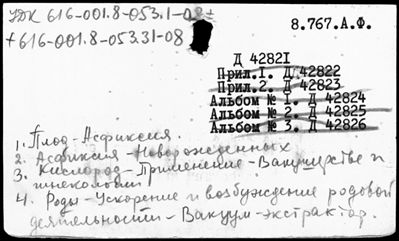 УДК 616-001.8-053.1-08 +
+616-001.8-053.31-08
8.767.А.Ф.
Д 42821
Прил.1. Д 42822
Прил.2. Д 42823
Альбом № 1. Д 42824
Альбом № 2. Д 42825
Альбом № 3. Д 42826
1. Плод-Асфиксия.
2. Асфиксия-Новорожденных
3. Кислород-Применение-В акушерстве и
гинекологии
4. Роды-Ускорение и возбуждение родовой
деятельности-Вакуум-экстрактор.